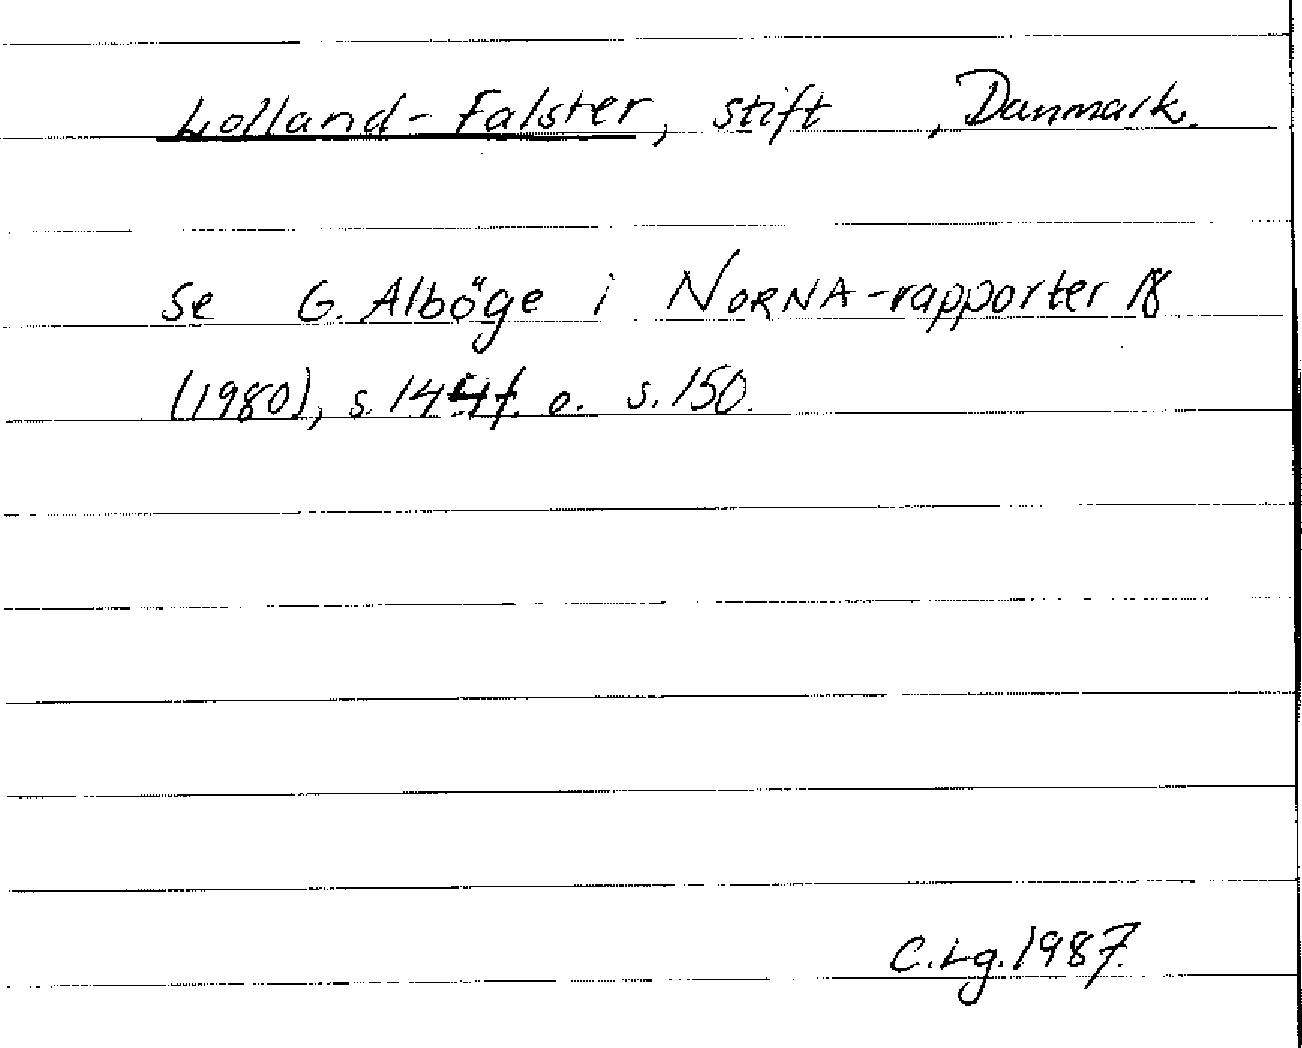 Lolland-Falster, stift , Danmark.
se G. Alböge i NORNA-rapporter 18
(1980), s. 144f. o. s. 150.
C.Lg. 1987.